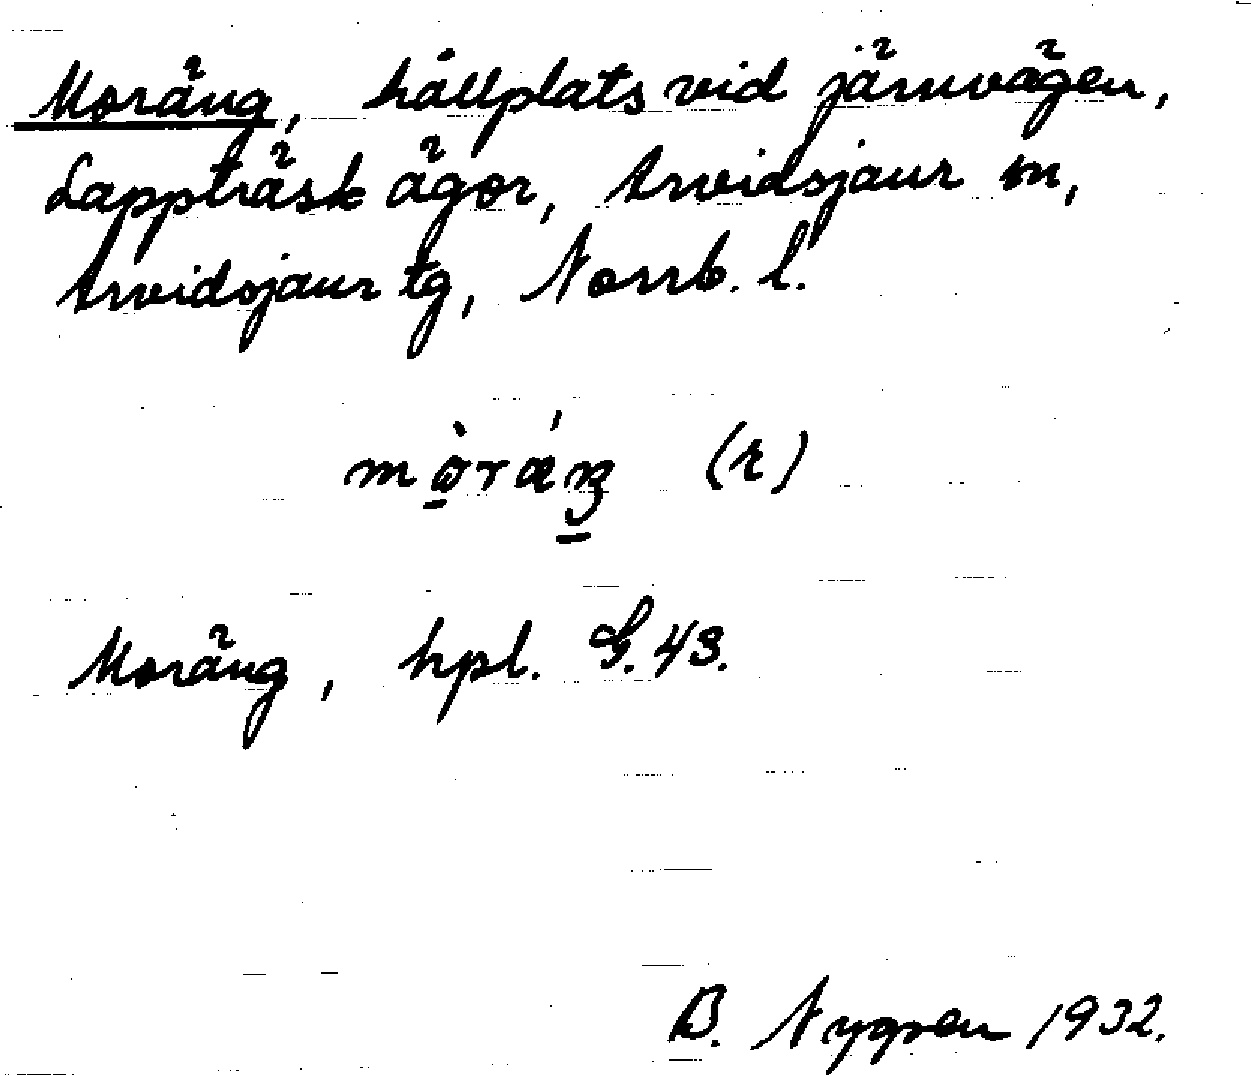 Moräng, hållplats vid järnvägen,
Lappträsk ägor, Arvidsjaur sn,
Arvidsjaur tg, Norrb. l.
(r)
Moräng, hpl. G. 43.
B. Nygren 1932.